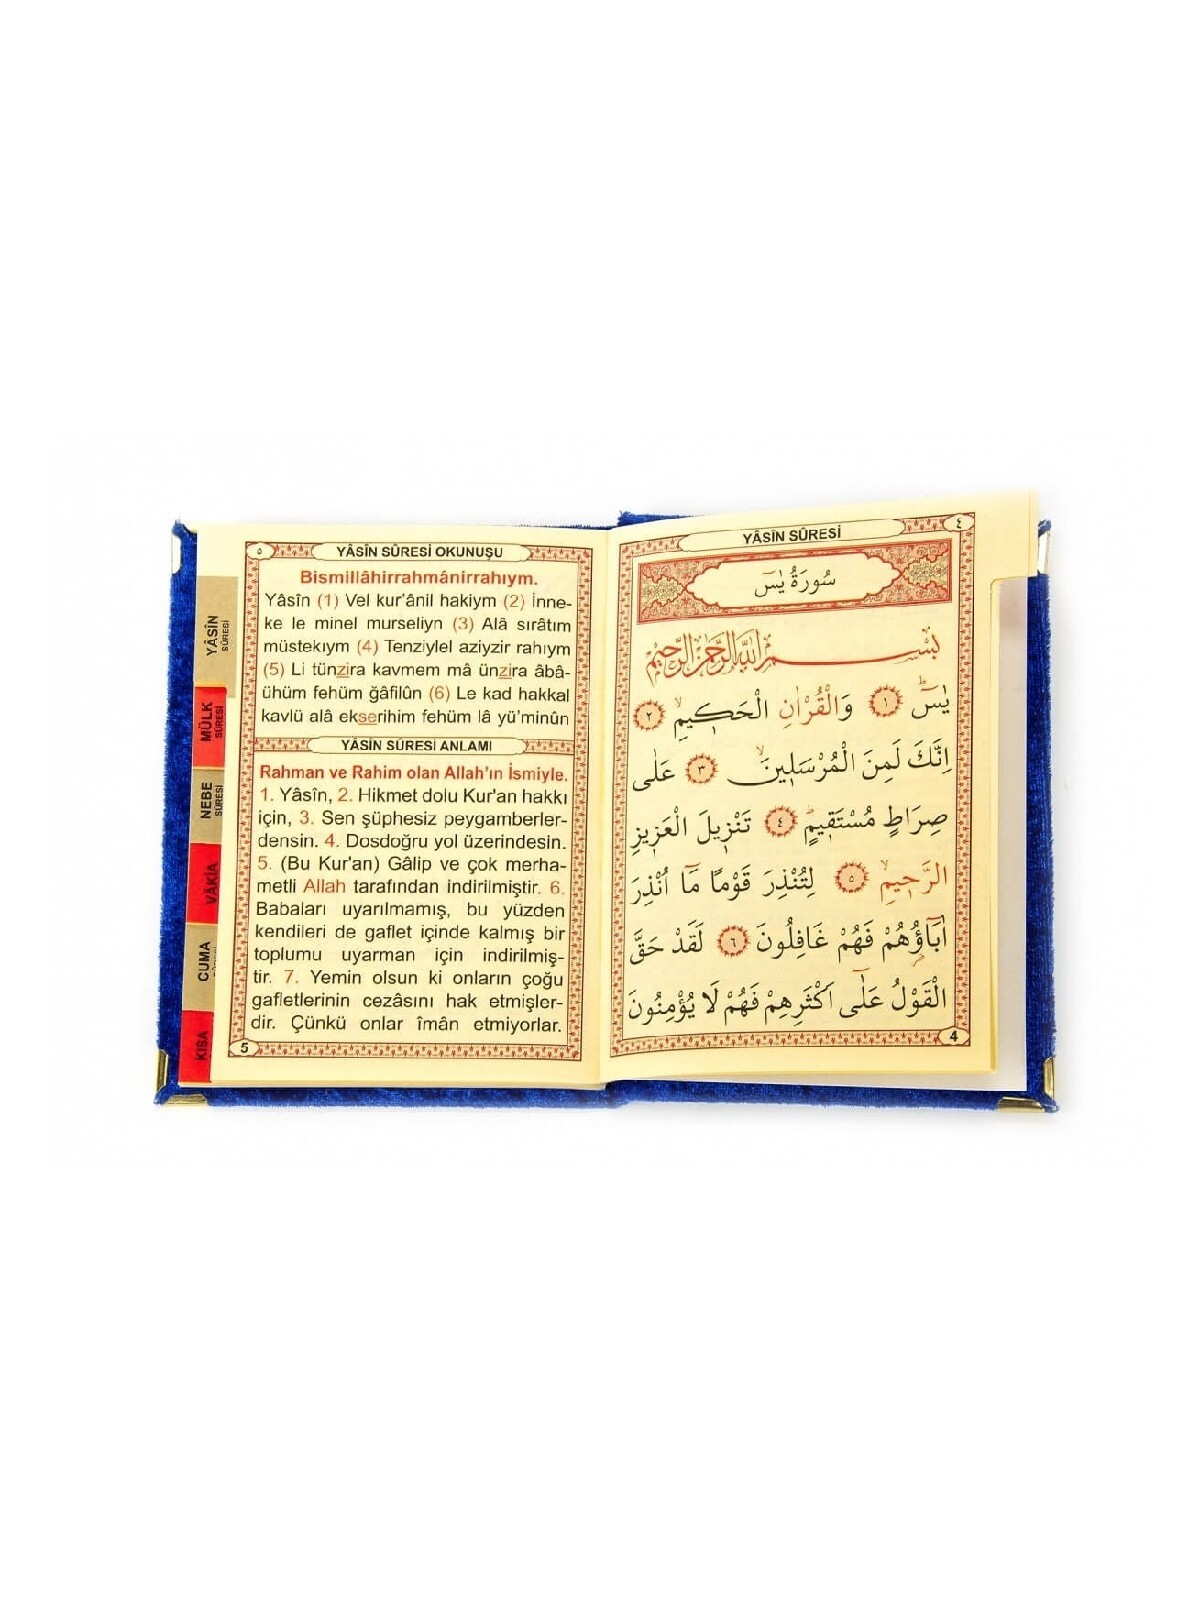 YÂSİN
SÛRESİ
MÜLK
SÛRESİ
NEBE
SÛRESİ
VÂKIA
CUMA
KISA
٥
YÂSÎN SÛRESİ OKUNUŞU
Bismillâhirrahmânirrahıym.
Yâsîn (1) Vel kur'ânil hakiym (2) İnne-
ke le minel murseliyn (3) Alâ sırâtım
müstekıym (4) Tenziylel aziyzir rahıym
(5) Li tünzira kavmem mâ ünzira âbâ-
ühüm fehüm ğâfilûn (6) Le kad hakkal
kavlü alâ ekserihim fehüm lâ yü'minûn
YÂSÎN SÛRESİ ANLAMI
Rahman ve Rahim olan Allah'ın İsmiyle.
1. Yâsîn, 2. Hikmet dolu Kur'an hakkı
için, 3. Sen şüphesiz peygamberler-
densin. 4. Dosdoğru yol üzerindesin.
5. (Bu Kur'an) Gâlip ve çok merha-
metli Allah tarafından indirilmiştir. 6.
Babaları uyarılmamış, bu yüzden
kendileri de gaflet içinde kalmış bir
toplumu uyarman için indirilmiş-
tir. 7. Yemin olsun ki onların çoğu
gafletlerinin cezâsını hak etmişler-
dir. Çünkü onlar îmân etmiyorlar.
5
٤
YÂSÎN SÛRESİ
سُورَةُ يٰسٓ
بِسْمِ اللّٰهِ الرَّحْمٰنِ الرَّحِيمِ
يٰسٓ ١ وَالْقُرْاٰنِ الْحَكِيمِ ٢
اِنَّكَ لَمِنَ الْمُرْسَلِينَ ٣ عَلٰى
صِرَاطٍ مُسْتَقِيمٍ ٤ تَنْزِيلَ الْعَزِيزِ
الرَّحِيمِ ٥ لِتُنْذِرَ قَوْمًا مَٓا اُنْذِرَ
اٰبَٓاؤُهُمْ فَهُمْ غَافِلُونَ ٦ لَقَدْ حَقَّ
الْقَوْلُ عَلٰٓى اَكْثَرِهِمْ فَهُمْ لَا يُؤْمِنُونَ
4